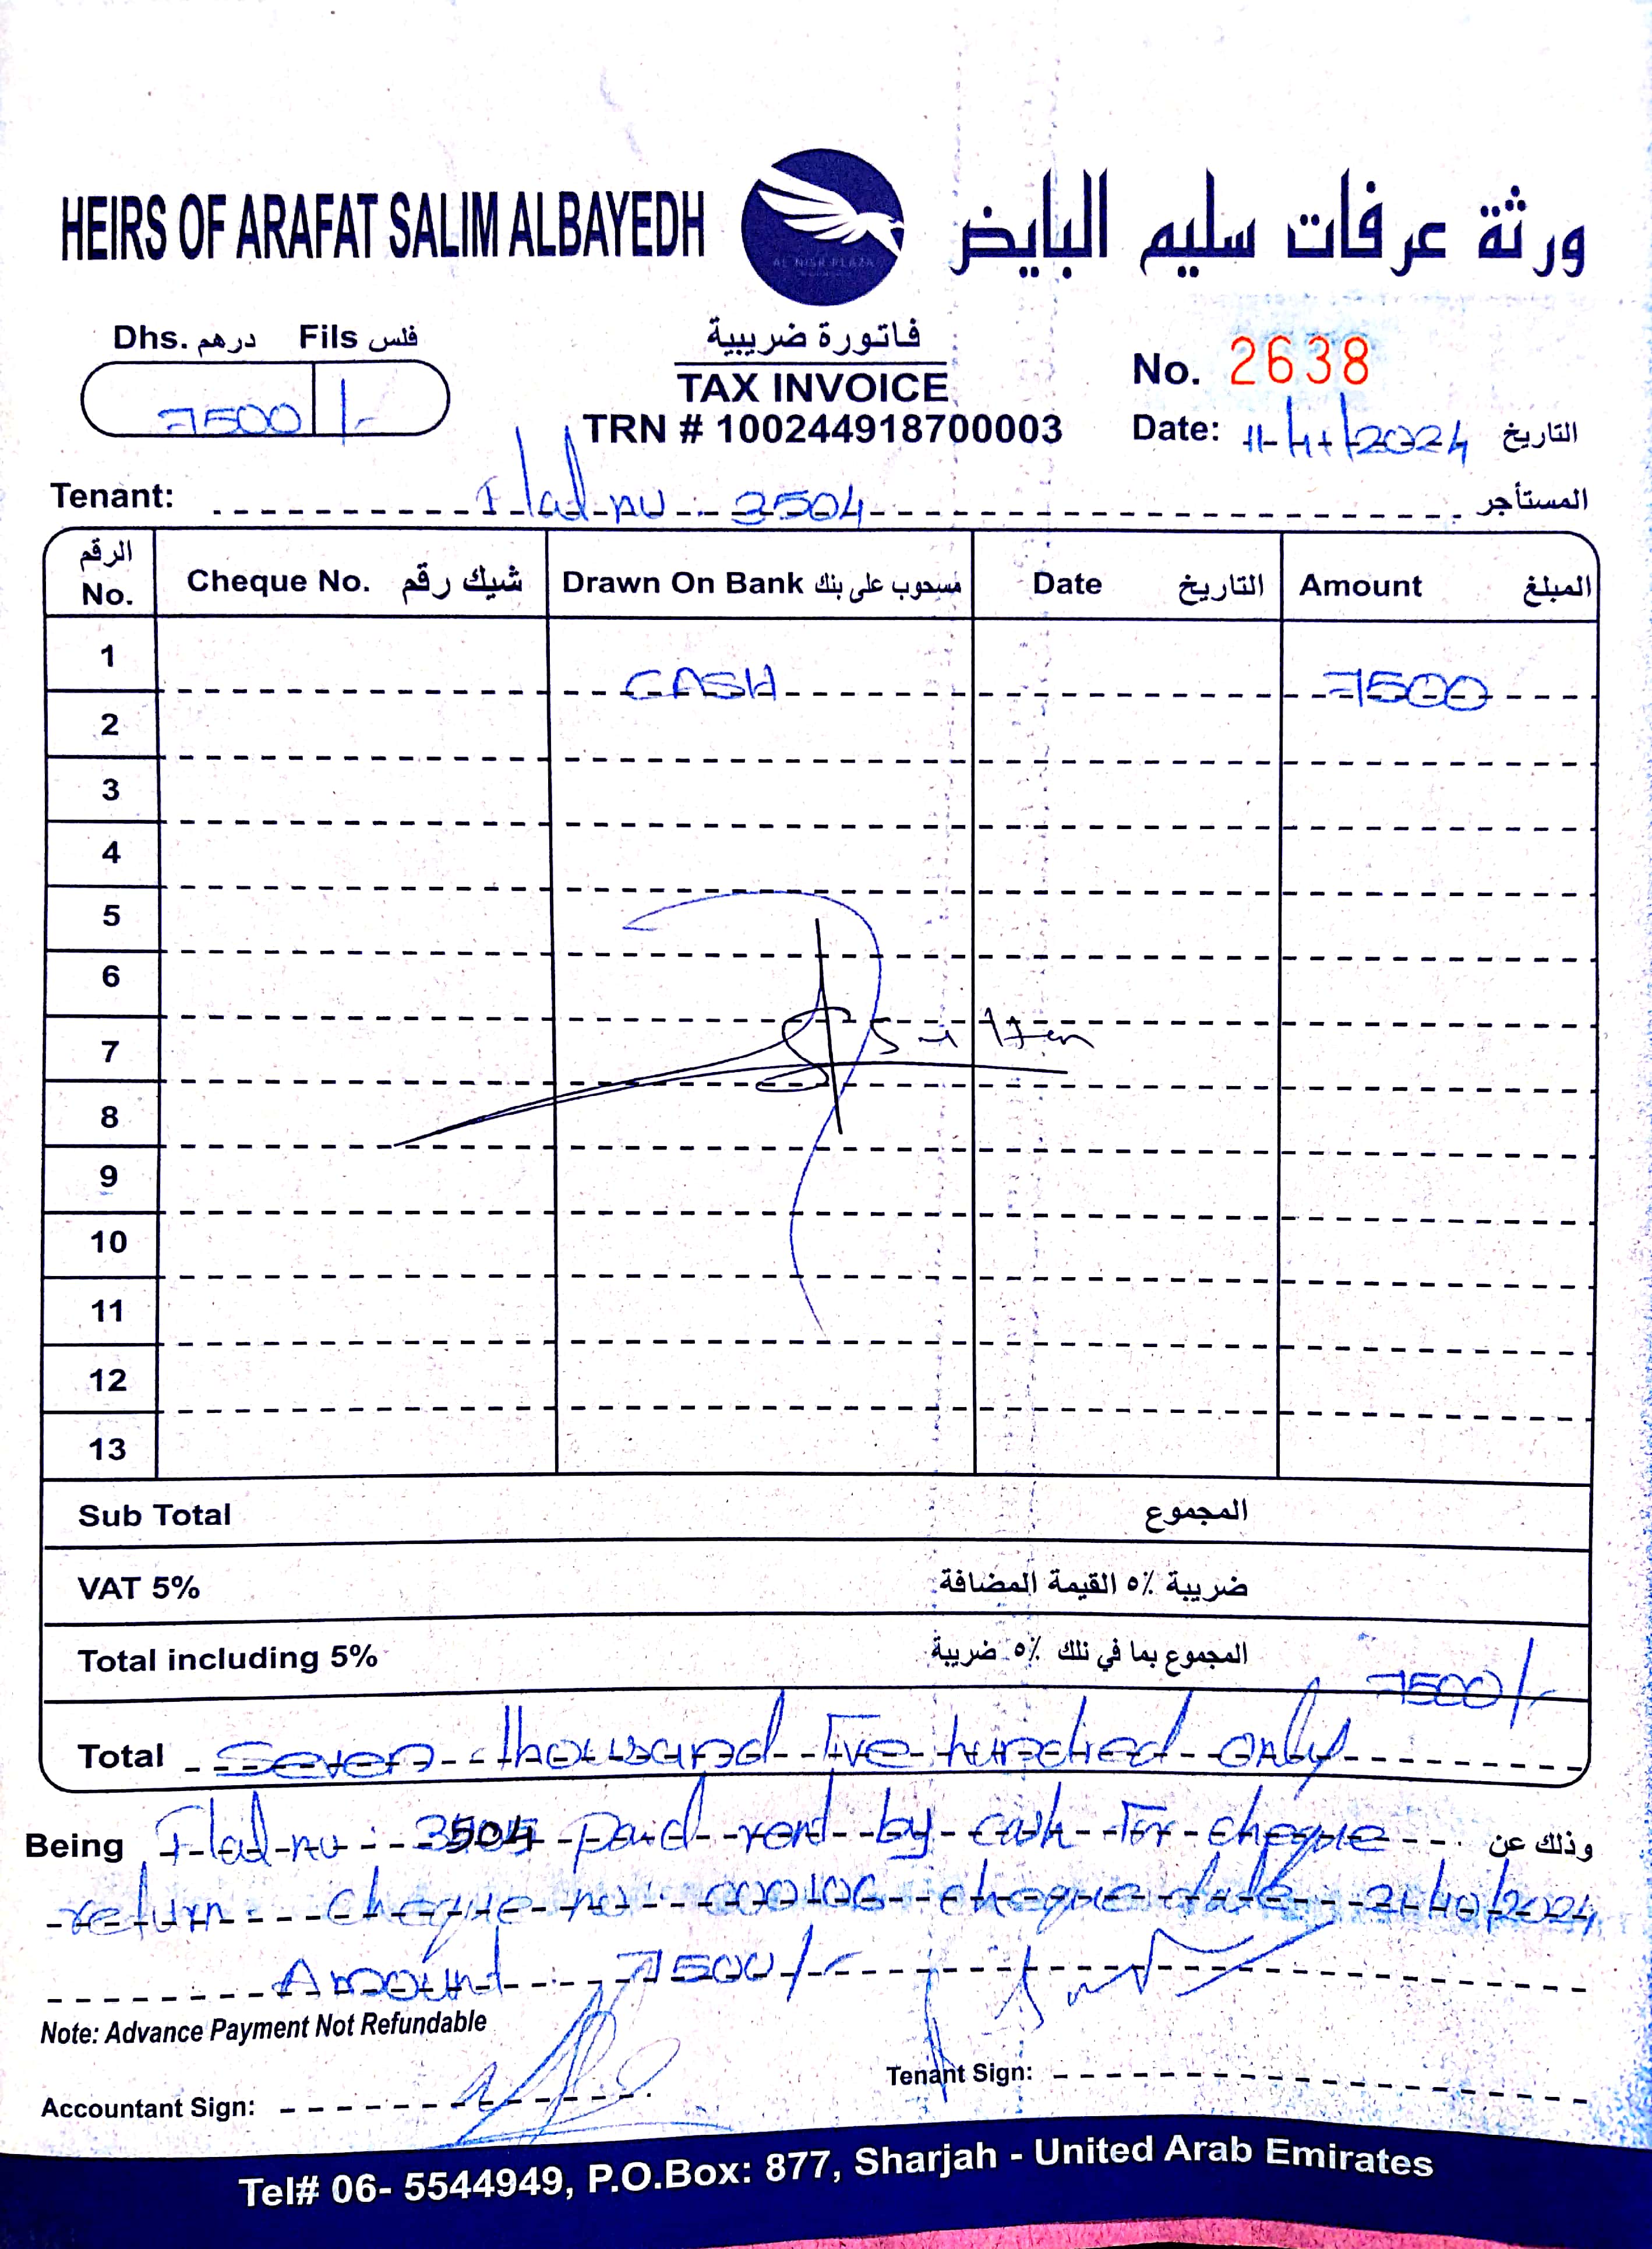 HEIRS OF ARAFAT SALIM ALBAYEDH
ورثة عرفات سليم البايض
AL NISR PLAZA
Dhs. درهم Fils فلس
7500 /-
فاتورة ضريبية
TAX INVOICE
TRN # 100244918700003
No. 2638
Date: 2024 التاريخ
Tenant: Flat nu : 3504 المستأجر
الرقم No. Cheque No. شيك رقم Drawn On Bank مسحوب على بنك Date التاريخ Amount المبلغ
1 CASH 7500
2
3
4
5
6
7
8
9
10
11
12
13
Sub Total المجموع
VAT 5% ضريبة ٥٪ القيمة المضافة
Total including 5% المجموع بما في نلك ٥٪ ضريبة 7500/-
Total Seven thousand Five hundred only
Being Flat nu : 3504 paid rent by cash For cheque وذلك عن
return : cheque no : 000106 cheque date 21/10/2024
Amount : 7500/-
Note: Advance Payment Not Refundable
Accountant Sign:
Tenant Sign:
Tel# 06- 5544949, P.O.Box: 877, Sharjah - United Arab Emirates